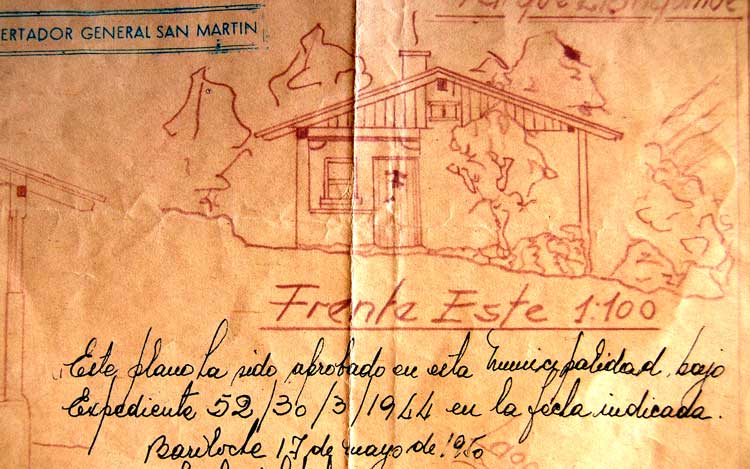 ERTADOR GENERAL SAN MARTIN
Frente Este 1:100
Este plano ha sido aprobado en esta Municipalidad, bajo
Expediente 52/30/3/1944 en la fecha indicada.
Bariloche 17 de mayo de 1950